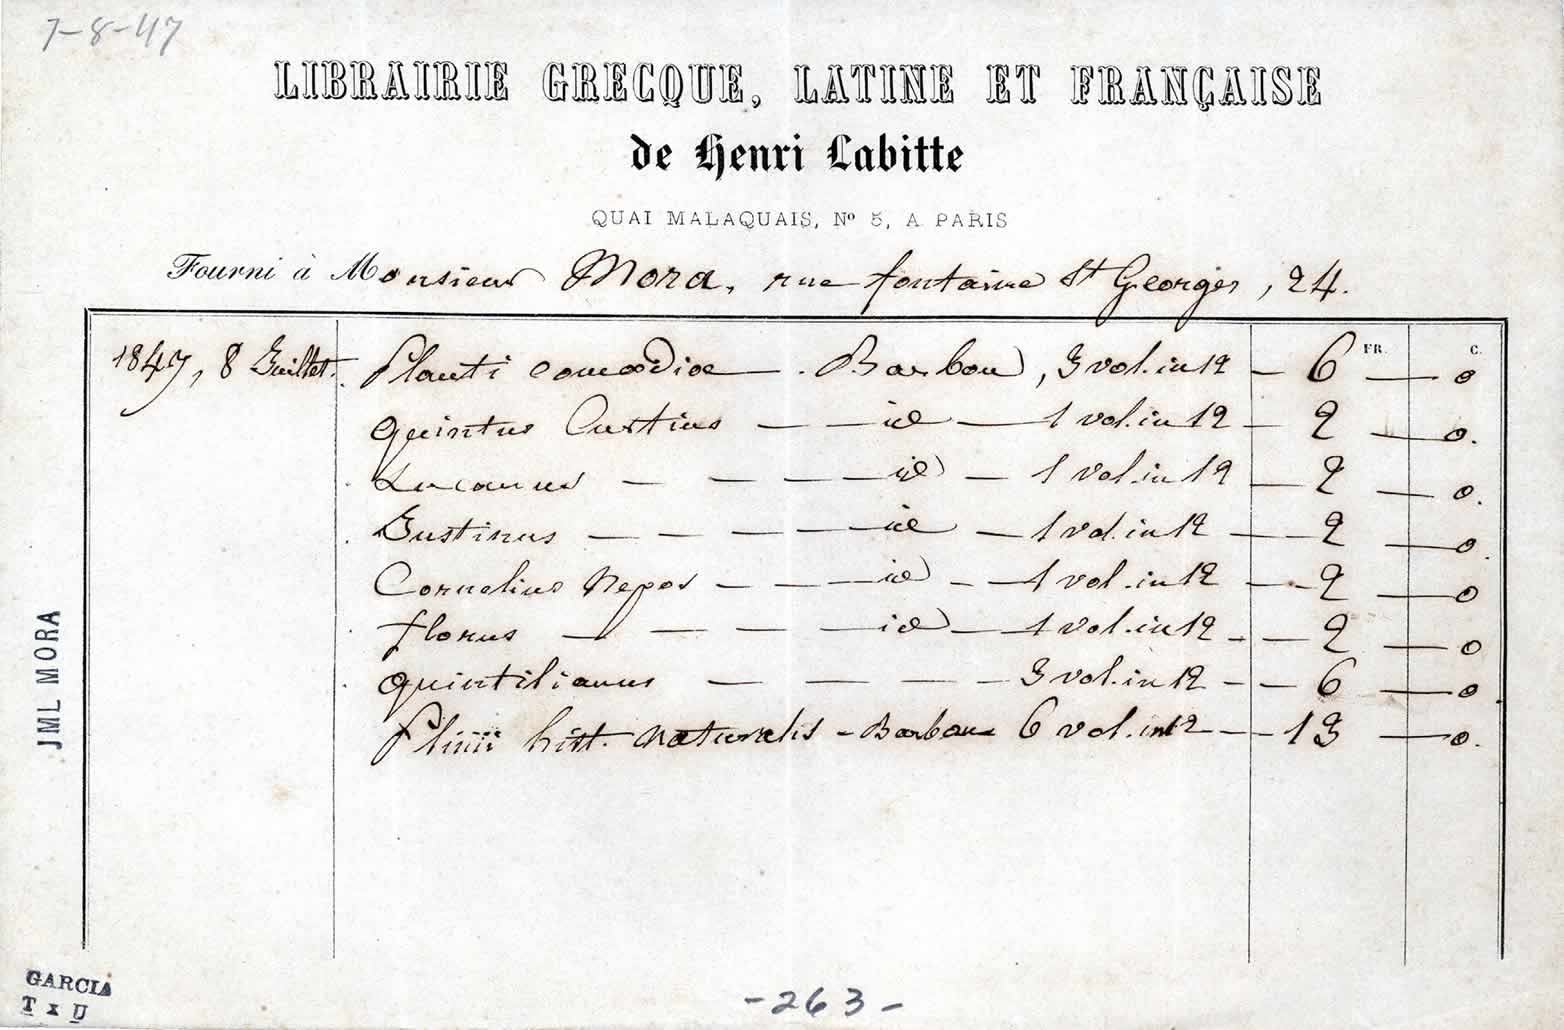 7-8-47
LIBRAIRIE GRECQUE, LATINE ET FRANÇAISE
de Henri Labitte
QUAI MALAQUAIS, Nº 5, A PARIS
Fourni à Monsieur Mora, rue fontaine St Georges, 24.
FR. C.
1847, 8 Juillet. Plauti comœdiæ - Barbou, 3 vol. in 12 - 6 - 0
Quintus Curtius - - id - 1 vol. in 12 - 2 - 0.
Lucanus - - - - id - 1 vol. in 12 - 2 - 0.
Justinus - - - - id - 1 vol. in 12 - 2 - 0.
Cornelius Nepos - - - id - 1 vol. in 12 - 2 - 0
florus - - - - id - 1 vol. in 12 - 2 - 0
Quintilianus - - - - - 3 vol. in 12 - 6 - 0
Plinii hist. naturalis - Barbou 6 vol. in 12 - 13 - 0.
JML MORA
GARCIA
T x U
-263-